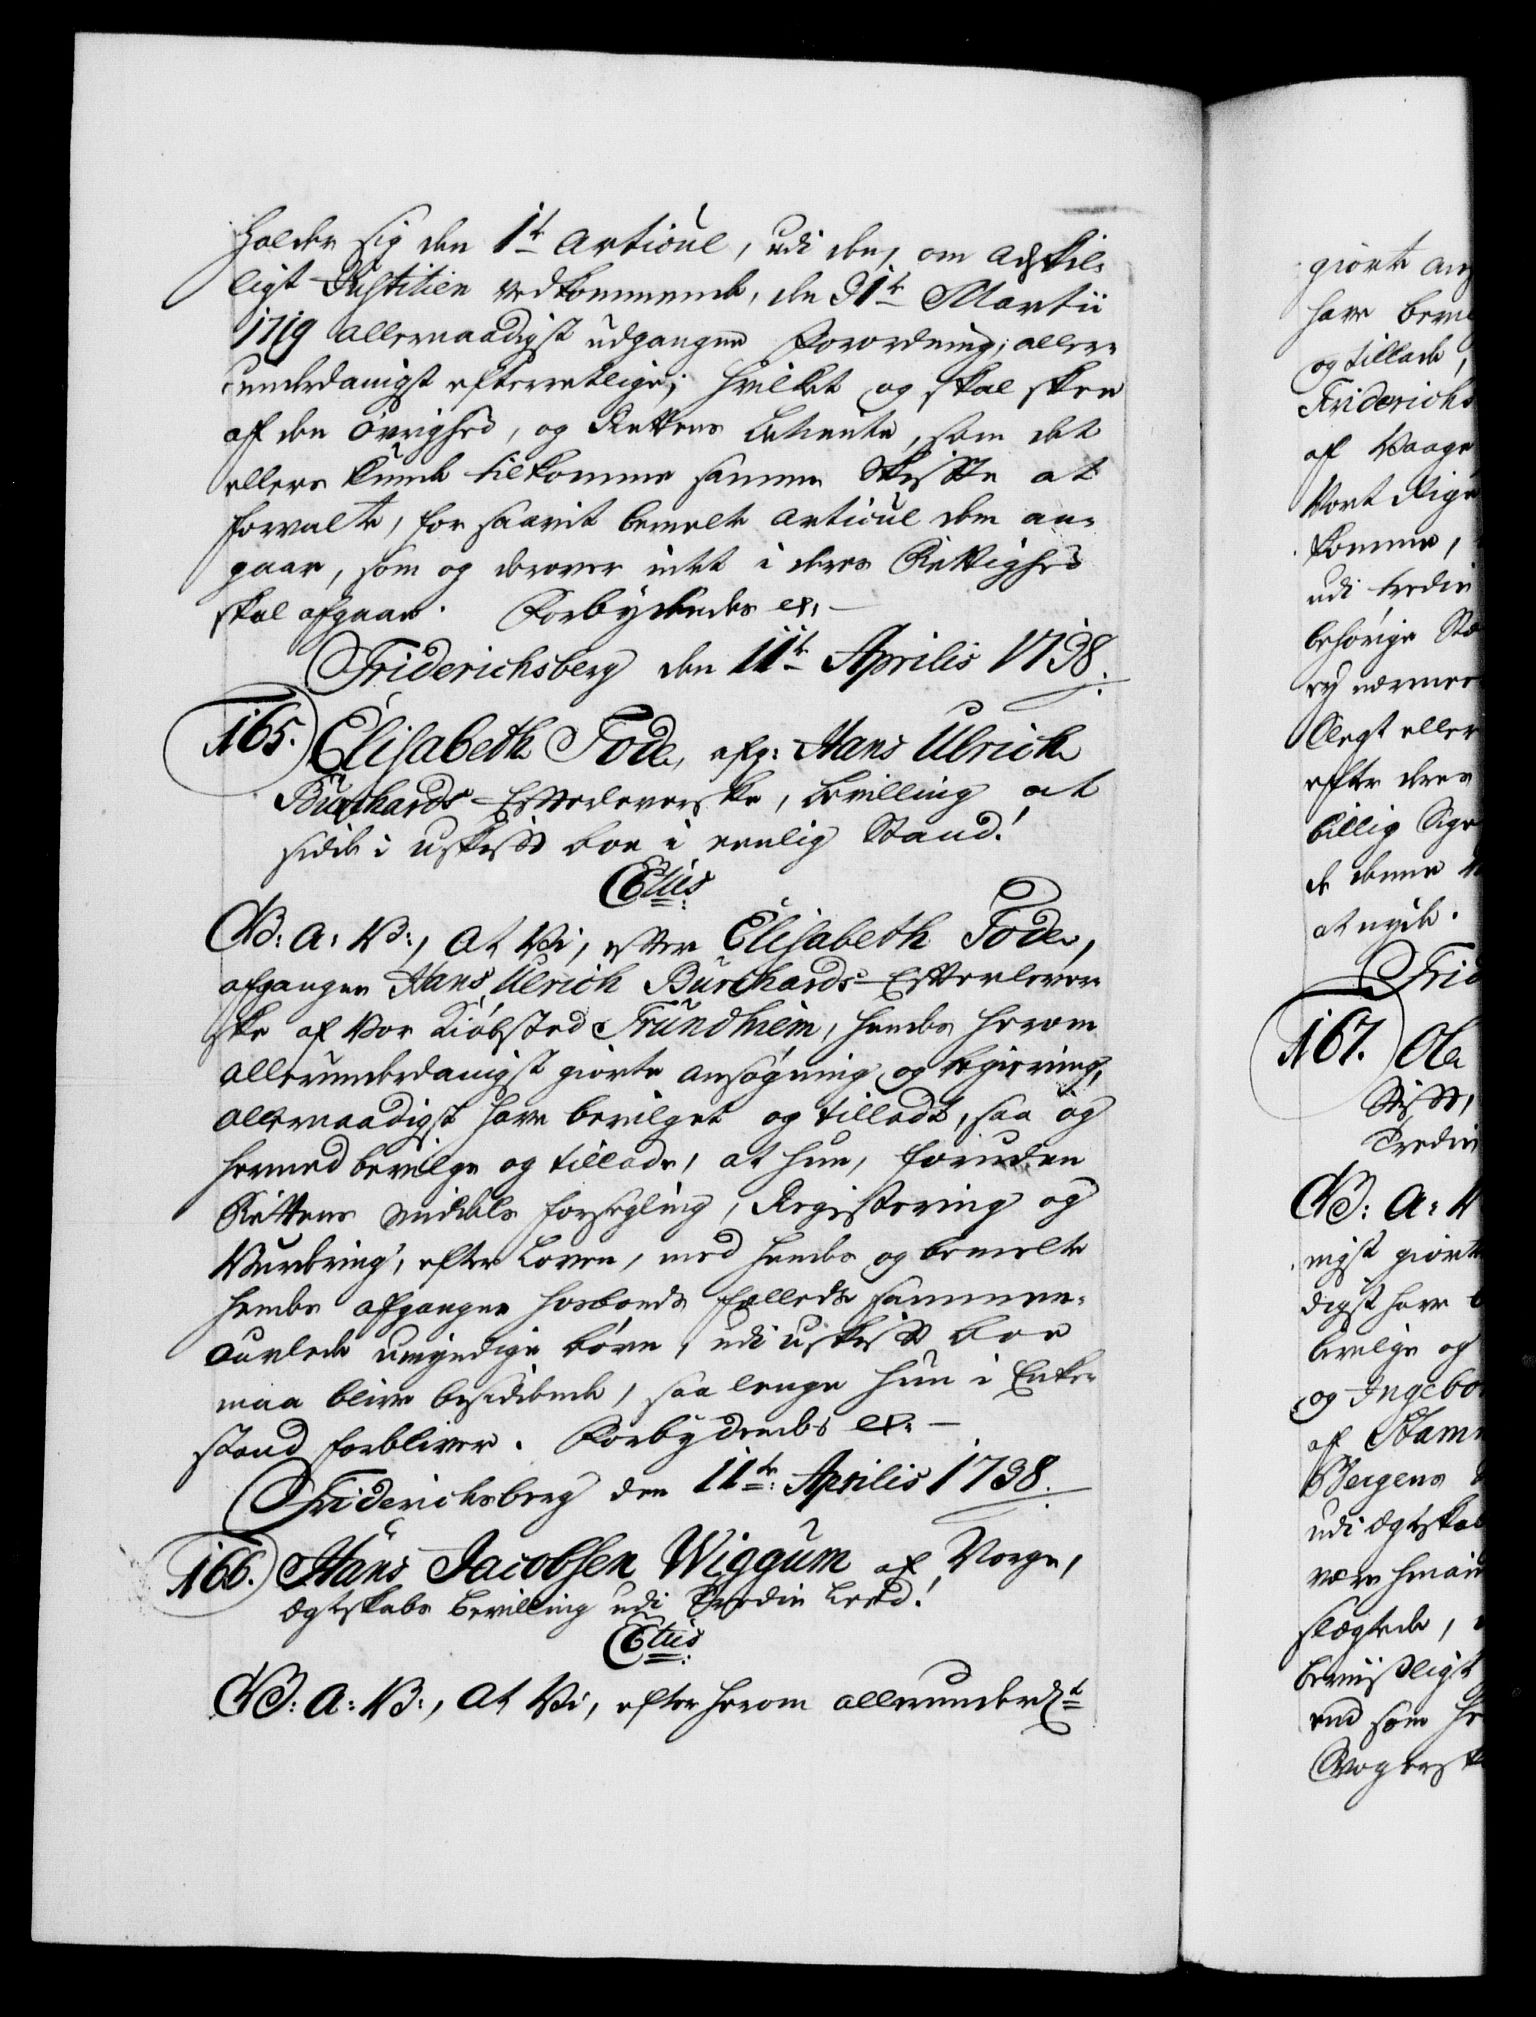 holder sig den 1te Articul, udi den, om adskil-
ligt Justitien vedkommende, den 31te Martii
1719 allernaadigst udgangne Forordning, aller-
underdanigst efterretlige; hvilket og skal skee
af den Øvrighed, og Rettens betiente, som det
ellers kunde tilkomme samme Skifte at
forvalte, for saavit bemelte Articul dem an-
gaar, som og derover intet i deres Rettighed
skal afgaae. Forbydendes etc. —
Friderichsberg den 11te Aprilis 1738.
165. Elisabeth Tode, afg: Hans Ulrich
Burchards Efterleverske, bevilling at
sidde i uskift boe i eenlig Stand!
C6tus
G: A: V:, At Vi, efter Elisabeth Tode,
afgangen Hans Ulrich Burchards Efterlever-
ske af Vor Kiøbsted Trundhiem, hendes herom
allerunderdanigst giorte ansøgning og begiering,
allernaadigst have bevilget og tilladt, saa og
hermed bevilge og tillade, at hun, foruden
Rettens Middels forsegling, Registering og
Vurdering, efter Loven, med hendes og bemelte
hendes afgangne Hosbonds fælleds sammen-
auflede umyndige børn, udi uskift boe
maa blive besiddende, saa lenge hun i Enke-
stand forbliver. Forbydendes etc. —
Friderichsberg den 11te: Aprilis 1738.
166. Hans Jacobsen Wiggum af Vorge,
Egteskabs bevilling udi Tredie Leed!
C6tus
G: A: V:, At Vi, efter herom allerunderd:t
giorte an
have bevil
og tillade,
Friderichs
af Vaage
Vort Rige
komme,
udi tredie
behørige Ste
ey nærmer
Slegt eller
efter deres
billig Sige
de denne
at nyde.
Frid
167. Ole
Stift,
Tredie
G: A: V
nigst giorte
digst have b
bevilge og
og Ingebor
af Ham
Bergens
udi Egteskab
være hinan
slegtede,
bevisligt
end som he
Svogersk